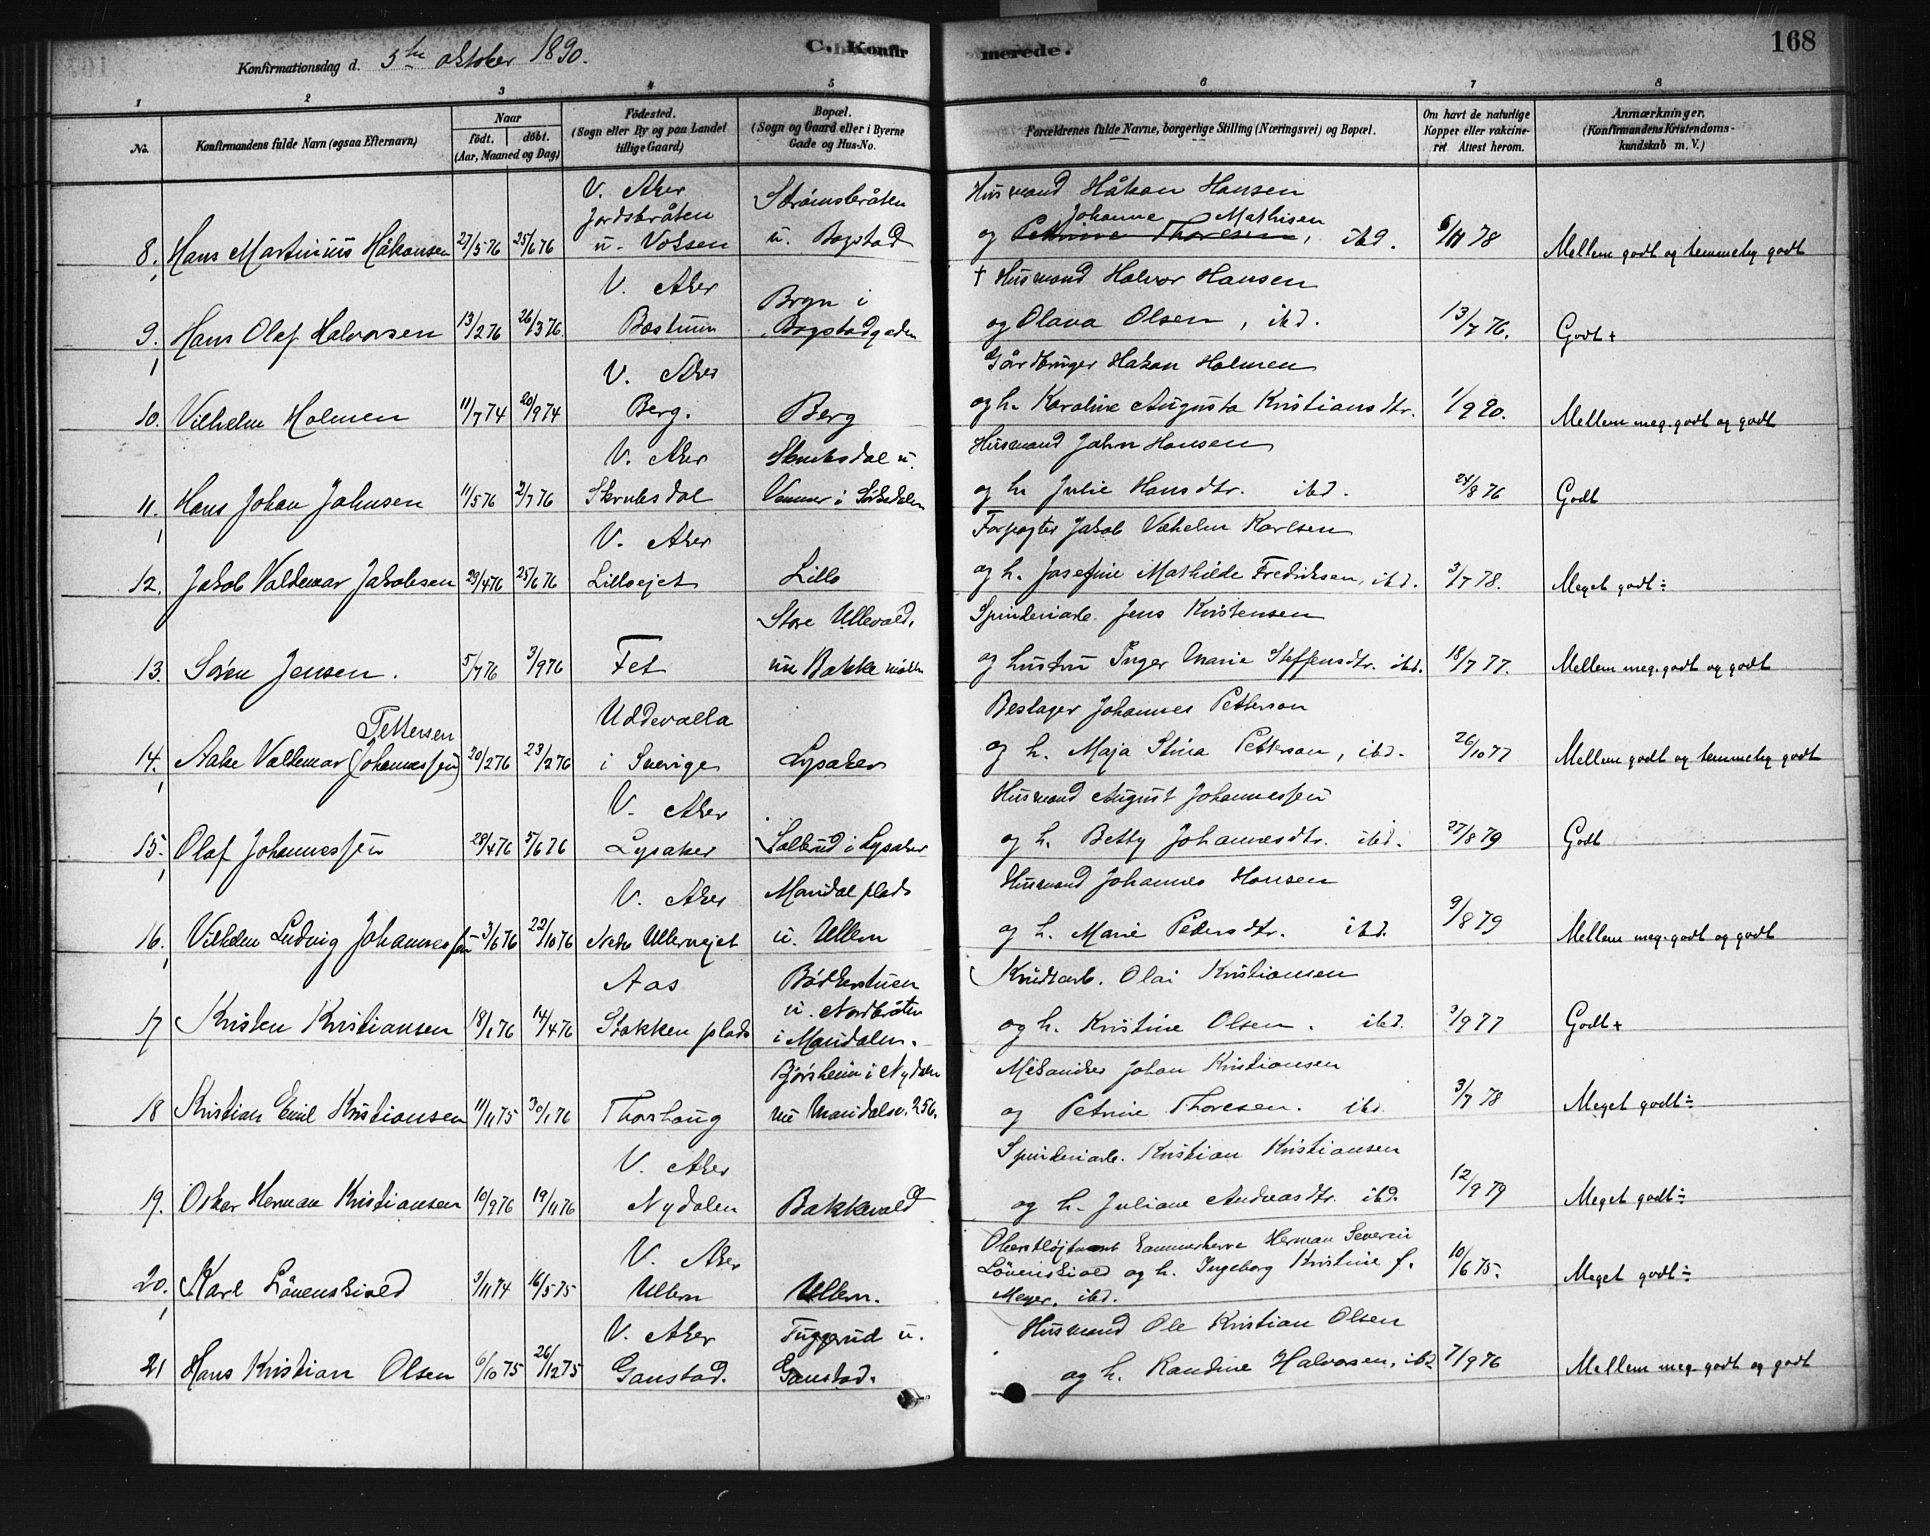 C. Konfirmerede.
168
Konfirmationsdag d. 5te oktober 1890.
1 2 3 4 5 6 7 8
No. Konfirmandens fulde Navn (ogsaa Efternavn) Naar født. døbt. (Aar, Maaned og Dag) Fødested. (Sogn eller By og paa Landet tillige Gaard) Bopæl. (Sogn og Gaard eller i Byerne Gade og Hus-No. Forældrenes fulde Navne, borgerlige Stilling (Næringsvei) og Bopæl. Om havt de naturlige Kopper eller vakcineret. Attest herom. Anmærkninger. (Konfirmandens Kristendomskundskab m. V.)
V. Aker Strømsbråten Husmand Håkon Hansen
Jordsbråten Johanne Mathisen
8. Hans Martinius Håkonsen 27/5 76 25/6 76 u. Voksen u. Bogstad og Petrine Thoresen, ibd. 6/11 78 Mellem godt og temmelig godt
V. Aker Bryn i † Husmand Halvor Hansen
9. Hans Olaf Halvorsen 13/2 76 26/3 76. Bostuen Bogstadgaden og Olava Olsen, ibd. 13/7 76. Godt +
V. Aker Gårdbruger Hakon Holmen
10. Vilhelm Holmen 11/7 74 20/9 74 Berg. Berg og h. Karoline Augusta Kristiansdtr. 1/9 90. Mellem meg. godt og godt
V. Aker Skrubsdal u. Husmand John Hansen
11. Hans Johan Johnsen 11/5 76 2/7 76 Skrubsdal Venner i Sørkedalen og h. Julie Hansdtr. ibd. 24/8 76 Godt
V. Aker Forpagter Jakob Vilhelm Karlsen
12. Jakob Valdemar Jakobsen 29/4 76 25/6 76 Lilloejet Lillo og h. Josefine Mathilde Fredriksen, ibd. 3/7 78. Meget godt ÷
Store Ullevold, Spinderiarb. Jens Kristensen
13. Søren Jensen. 5/7 76 3/9 76 Fet nu Bakke mølle og hustru Inger Marie Steffensdtr. ibd. 18/7 77. Mellem meg. godt og godt
Pettersen Uddevalla Beslager Johannes Petterson
14. Aake Valdemar (Johannessen) 20/2 76 23/2 76 i Sverige Lysaker og h. Maja Stina Petterson, ibd. 26/10 77 Mellem godt og temmelig godt
V. Aker Husmand August Johannessen
15. Olaf Johannessen 28/4 76 5/6 76 Lysaker Solbrud i Lysaker og h. Betty Johannesdtr. ibd. 27/8 79 Godt
V. Aker Maridal plads Husmand Johannes Hansen
16. Vilhelm Ludvig Johannessen 3/6 76 22/10 76 Nedre Ullernejet u. Ullern og h. Marie Pedersdtr. ibd. 9/8 79 Mellem meg. godt og godt
Aas Bødkerstuen Krudtarb. Olai Kristiansen
u. Nordbråten
17 Kristen Kristiansen 18/1 76 14/4 76 Stokken plads i Maridalen. og h. Kristine Olsen. ibd. 3/9 77 Godt +
Bjørsheim i Nydalen Mekaniker Johan Kristiansen
18 Kristian Emil Kristiansen 11/11 75 30/1 76 Thorshaug nu Maridalsv. 256. og Petrine Thoresen. ibd. 3/7 78 Meget godt ÷
V. Aker Spinderiarb. Kristian Kristiansen
19. Oskar Herman Kristiansen 10/9 76 19/11 76 Nydalen Bakkevold og h. Juliane Andreasdtr. ibd. 12/9 79 Meget godt ÷
V. Aker Oberstløjtnant kammerherre Herman Severin
20. Karl Løvenskiold 3/11 74 16/5 75 Ullern Ullern. Løvenskiold og h. Ingeborg Kristine f. 10/6 75. Meget godt ÷
Meyer, ibd.
V. Aker Tuggerud u. Husmand Ole Kristian Olsen
21 Hans Kristian Olsen 6/10 75 26/12 75 Gaustad. Gaustad. og h. Randine Halvorsen, ibd 7/9 76 Mellem meg. godt og godt